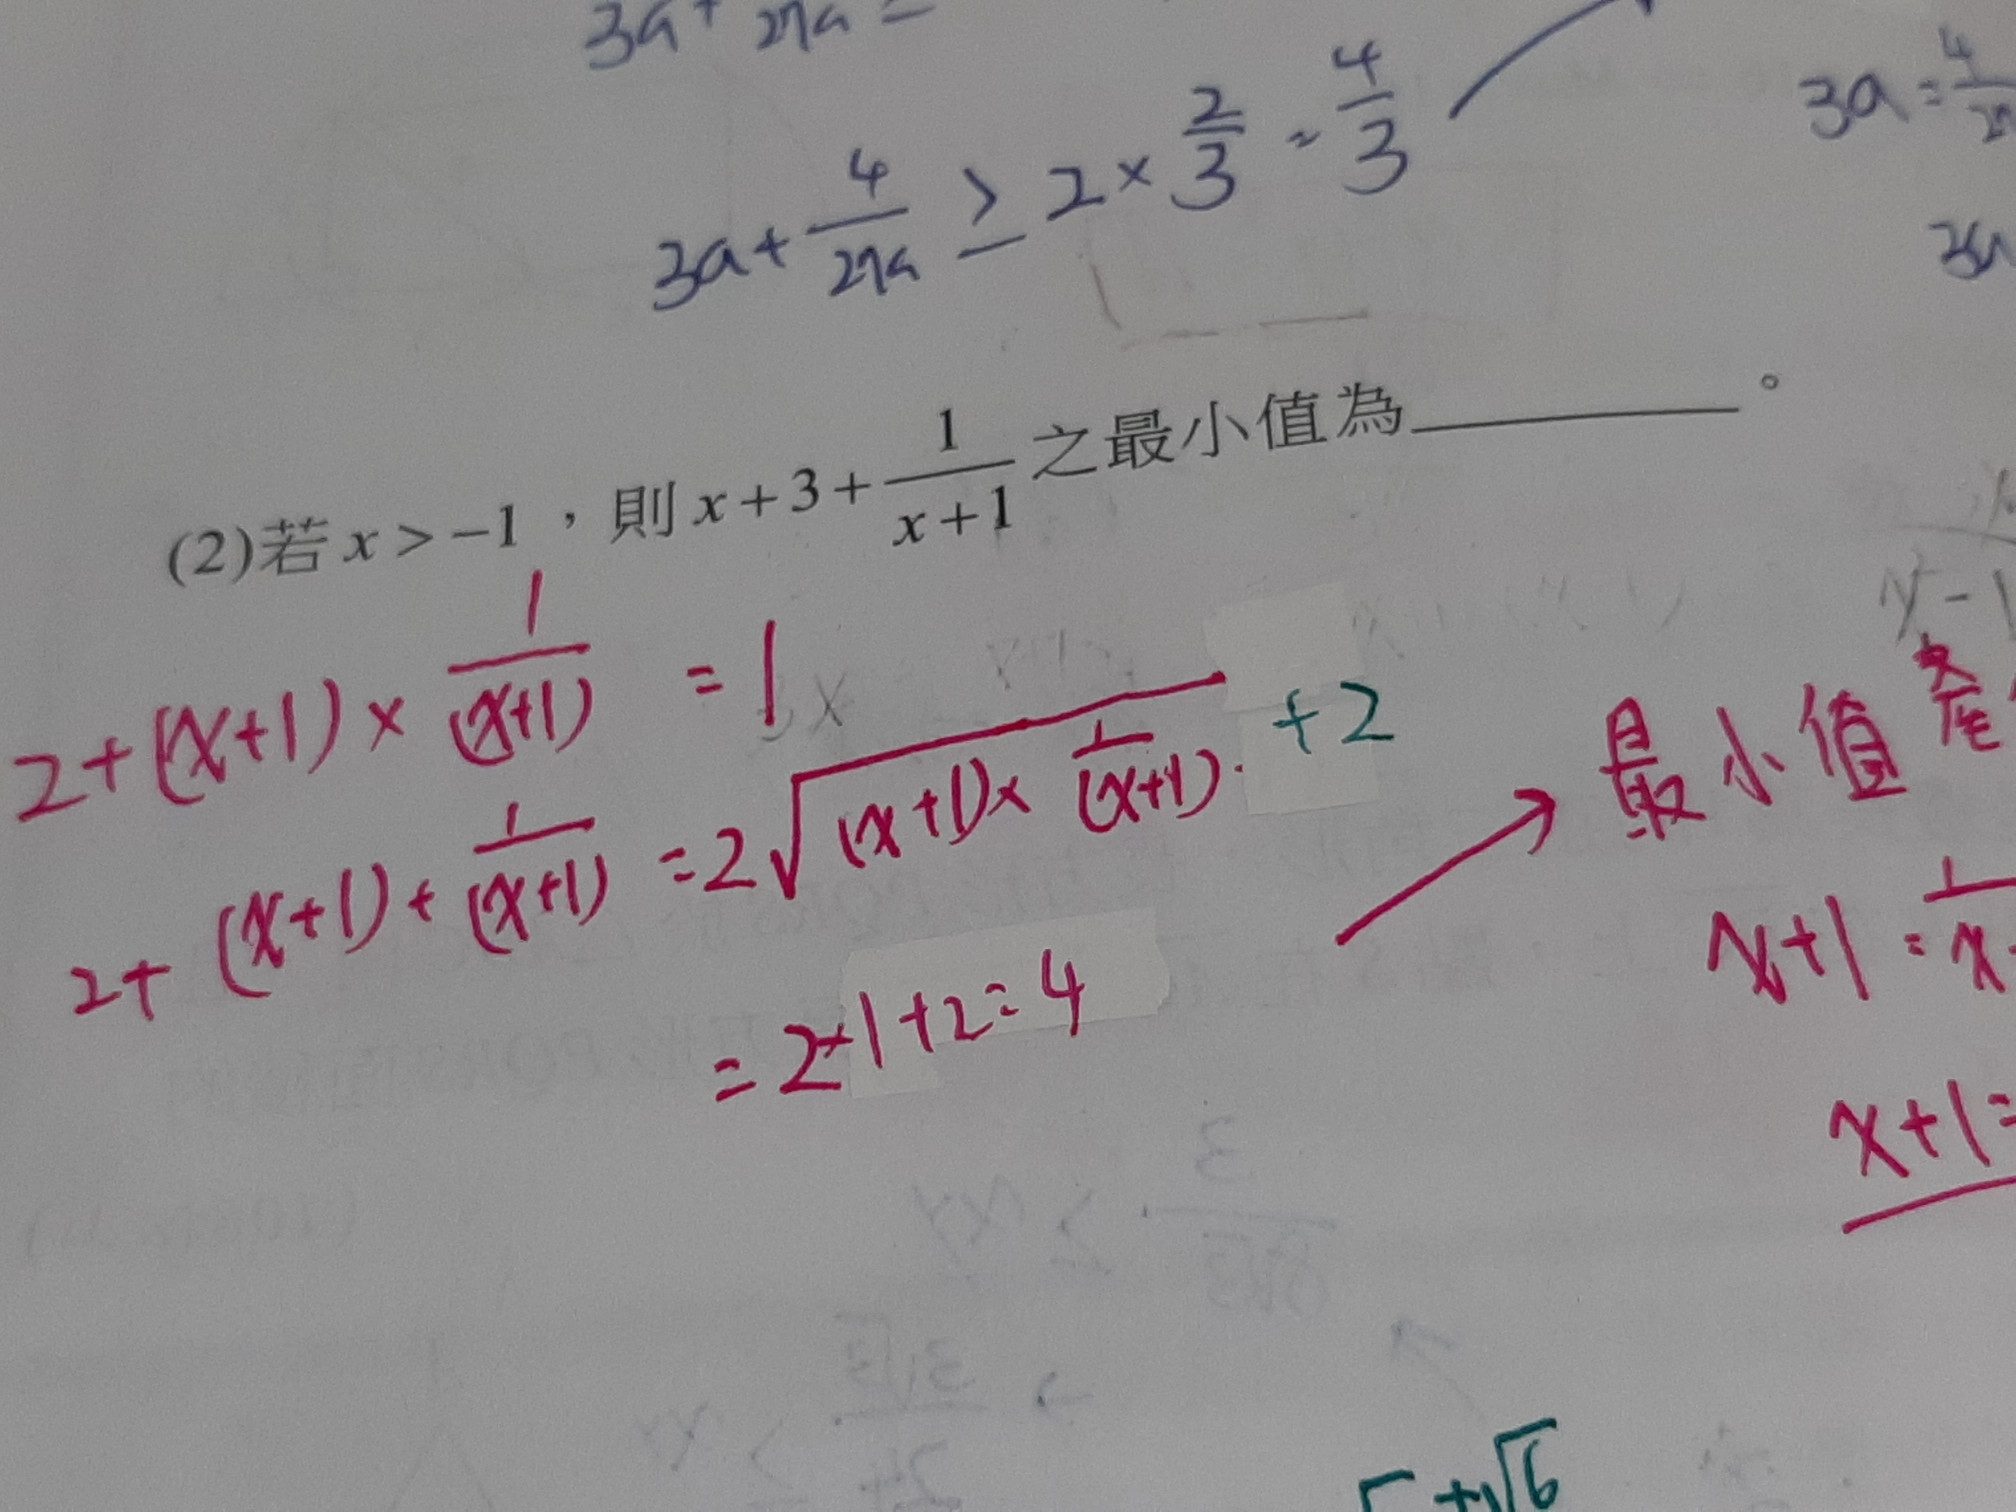 3a+
3a+4/27a ≥ 2×2/3 = 4/3
3a=
(2)若x>−1，則x+3+1/(x+1)之最小值為________。
2+(x+1)×1/(x+1) =1
2+(x+1)+1/(x+1) =2√((x+1)×1/(x+1)) +2
=2×1+2=4
最小值
x+1=
x+1=
+√6